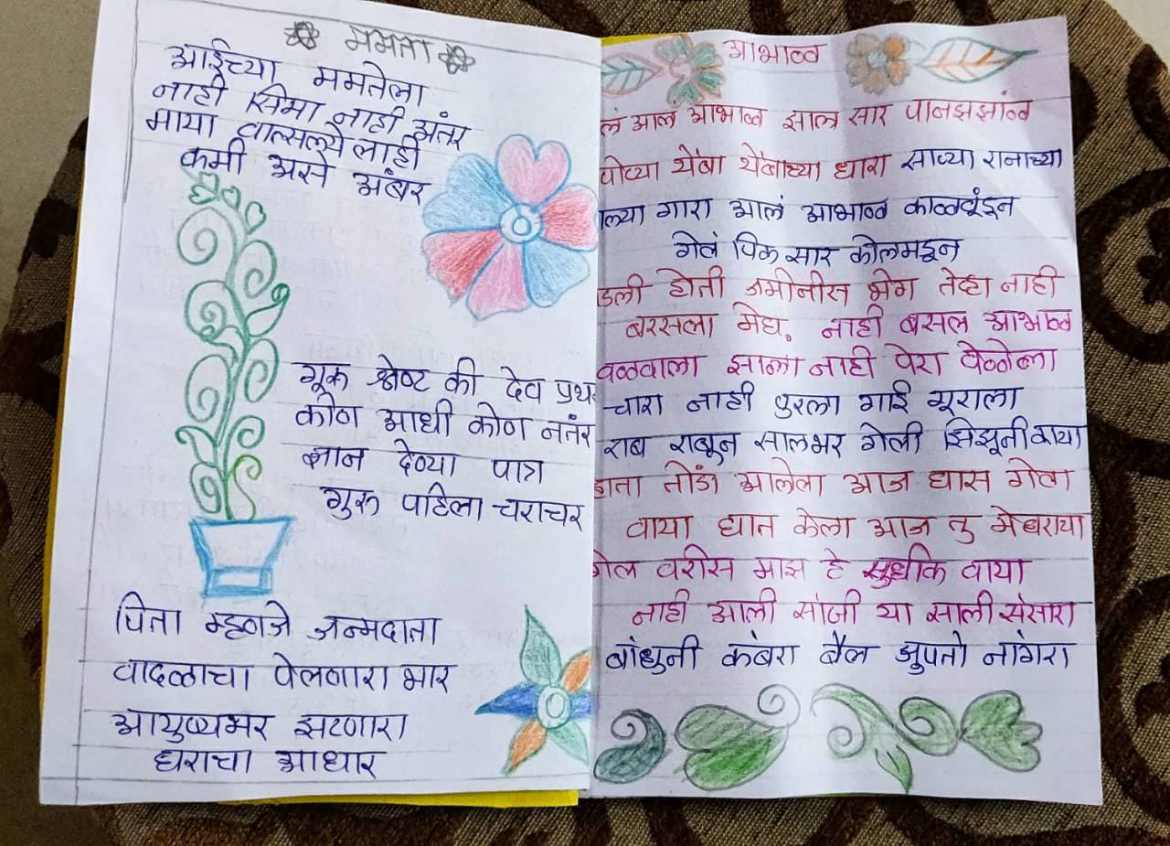 ममता
आईच्या ममतेला
नाही सिमा नाही अंतर
माया वात्सल्ये लाही
कमी असे अंबर
गूरू श्रेष्ट की देव प्रथ
कोण आधी कोण नतंर
ज्ञान देव्या पात्र
गुरु पहिला चराचर
पिता म्हणजे जन्मदाता
वादळाचा पेलणारा भार
आयुष्यभर झटणारा
घराचा आधार
आभाळ
लं आल आभाळ झाल सार पानझझांळ
पोच्या येंबा येंबाच्या धारा साच्या रानाच्या
ल्या गारा आलं आभाळ काळवंडून
गेलं पिक सार कोलमडून
डली होती जमीनीस भेग तेव्हा नाही
बरसला मेघ. नाही बसल आभाळ
वळवाला झाला नाही पेरा वेळेला
चारा नाही पुरला गाई गूराला
राब राबून सालभर गेली झिझूनी काया
हाता तोंडा आलेला आज घास गेला
वाया घात केला आज तु मेघराया
गेल वरीस माझ हे सुधीक वाया
नाही आली सोजी या साली संसारा
बांधुनी कंबरा बैल झुपतो नांगरा